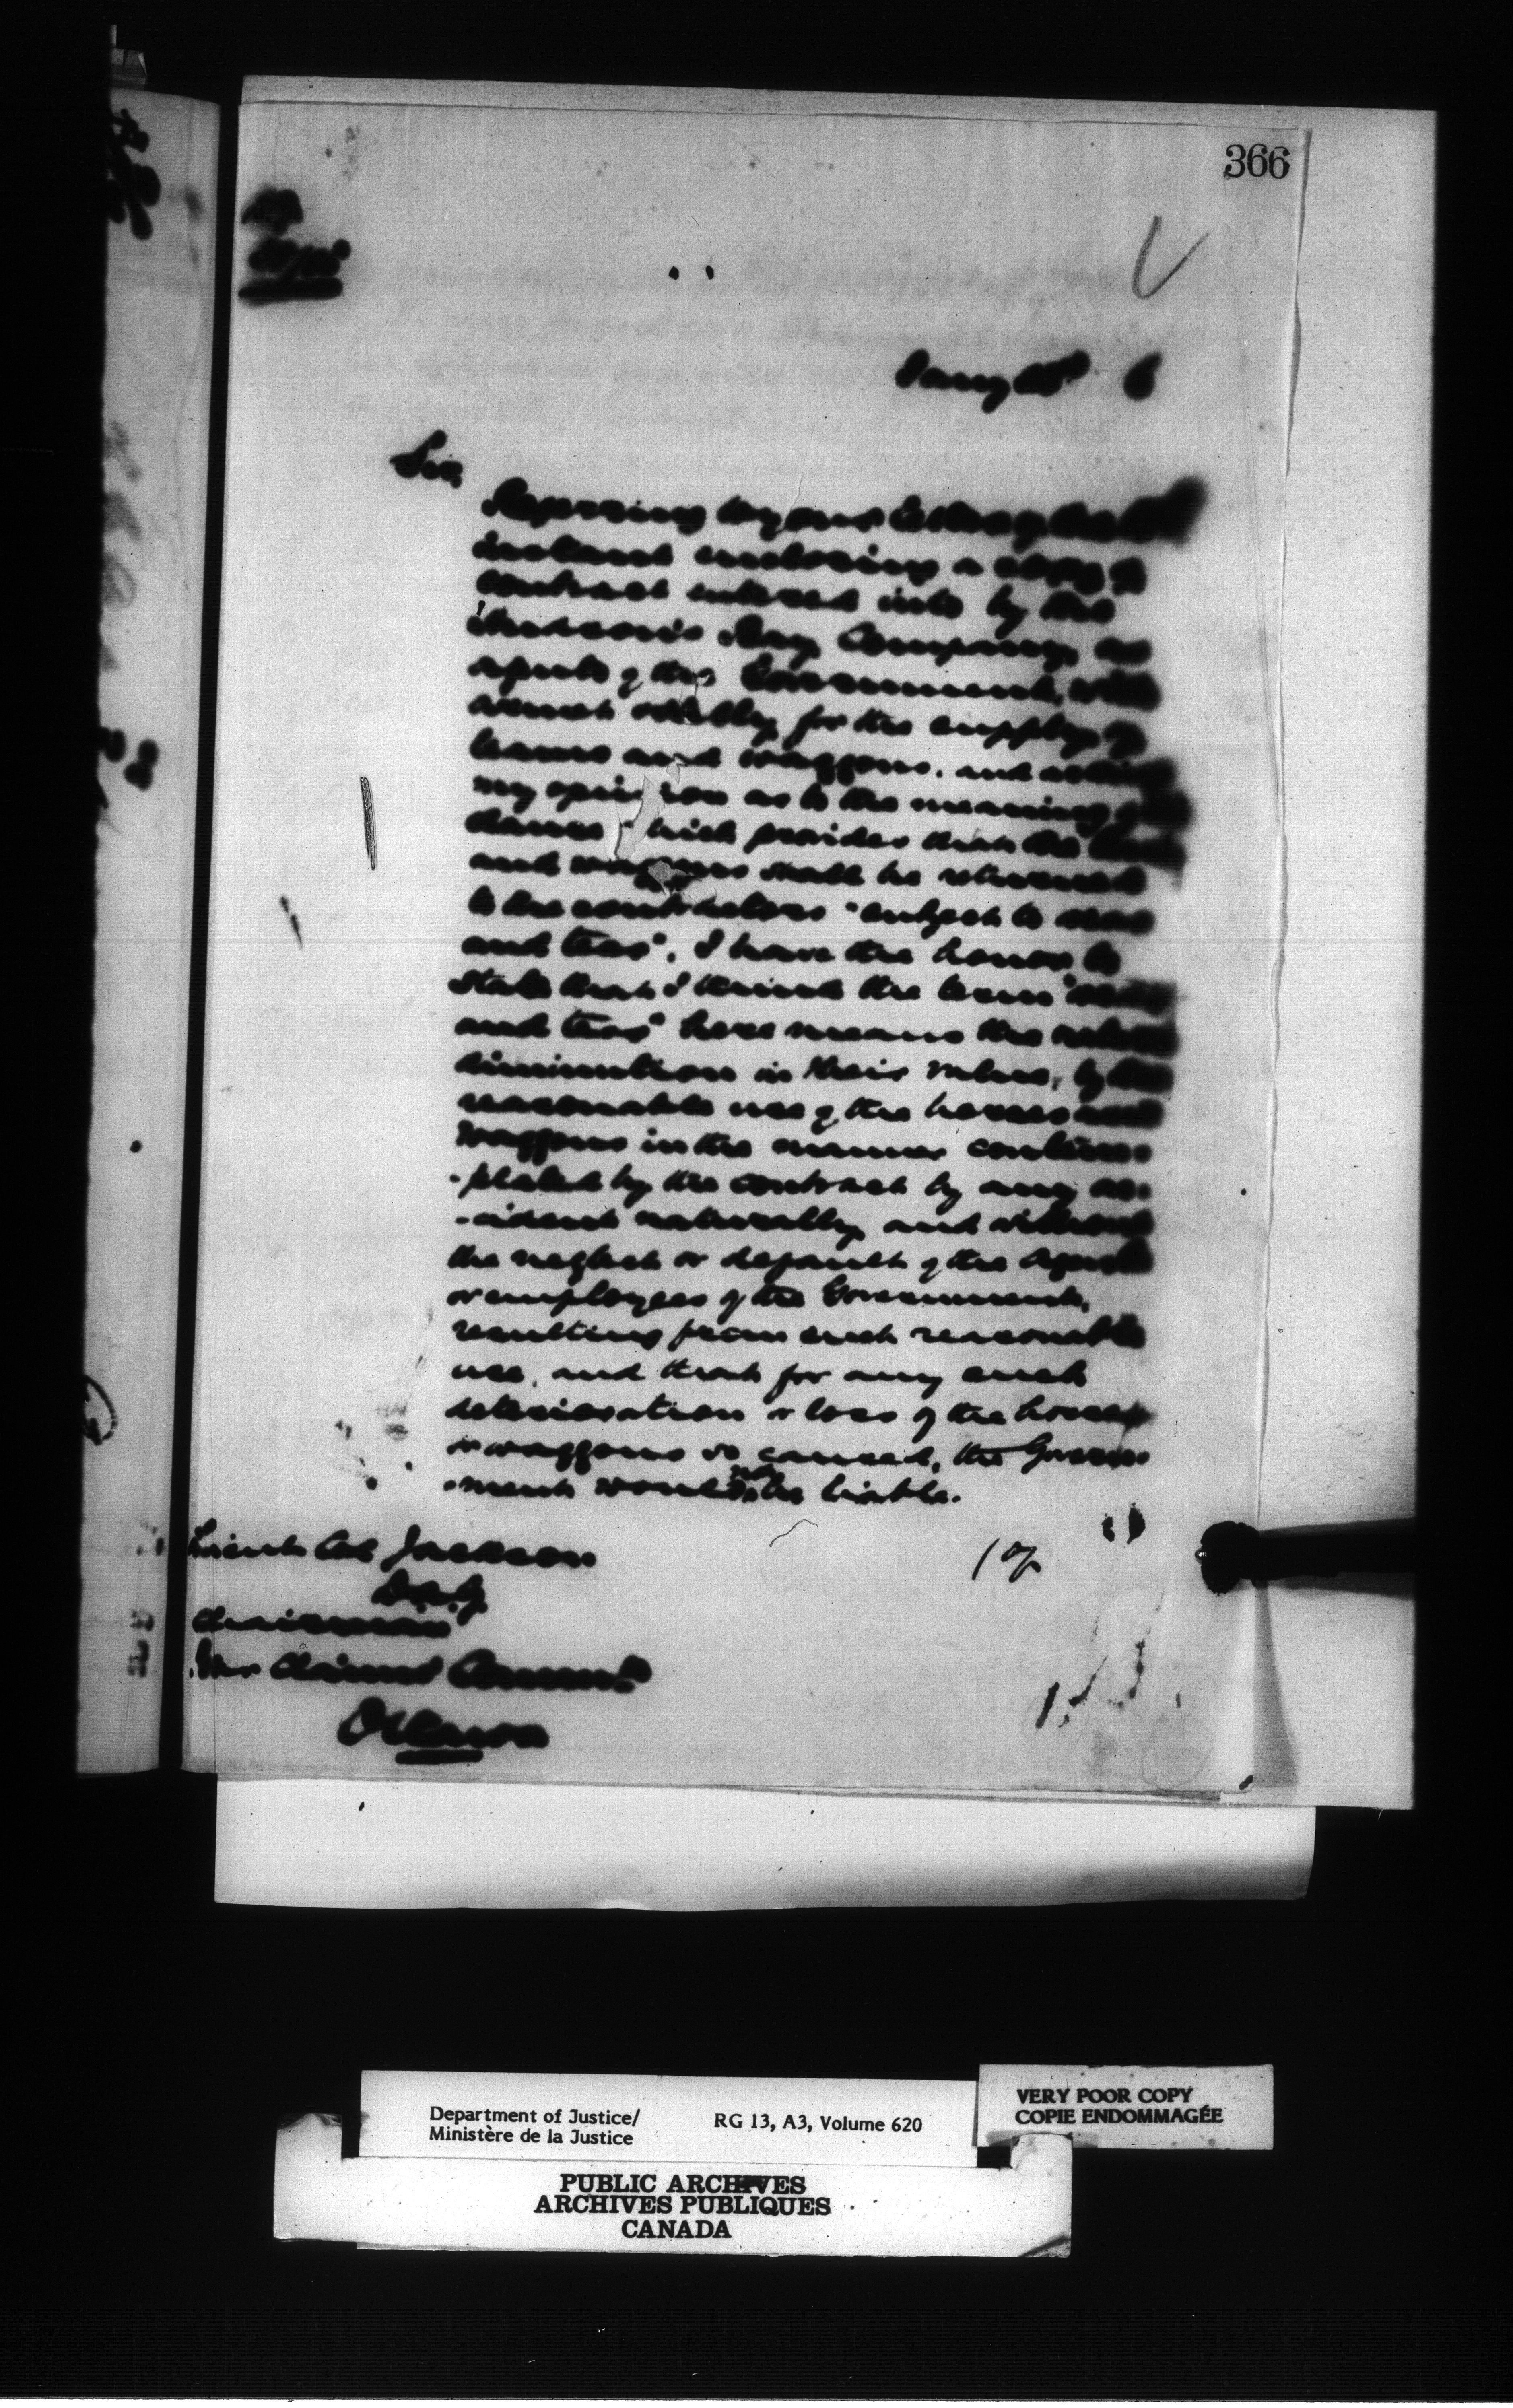 366
Jany 6
Sir,
Referring to your letter of the
instant enclosing a copy of
contract entered into by the
Hudson's Bay Company, as
agents of the Government, with
for the supply of
teams and waggons, and asking
my opinion as to the meaning of the
clause which provides that the teams
and waggons shall be returned
to the contractors "subject to wear
and tear", I have the honor to
state that I think the term "wear
and tear" here means the
diminution in their value, by the
reasonable use of the horses and
waggons in the manner contem-
-plated by the contract by any ac-
-cident naturally, and without
the neglect or default of the agents
or employees of the Government,
resulting from such reasonable
use, and that for any such
deterioration or loss of the horses
or waggons so caused, the Govern-
-ment would not be liable.
Lieut Col Jackson
D.A.G.
Chairman
War Claims Commn
Ottawa
Department of Justice/
Ministère de la Justice
RG 13, A3, Volume 620
VERY POOR COPY
COPIE ENDOMMAGÉE
PUBLIC ARCHIVES
ARCHIVES PUBLIQUES
CANADA